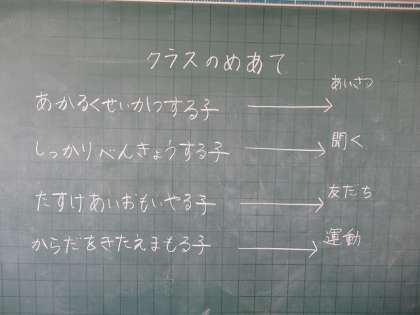 クラスのめあて
あかるくせいかつする子 → あいさつ
しっかりべんきょうする子 → 聞く
たすけあいおもいやる子 → 友だち
からだをきたえまもる子 → 運動